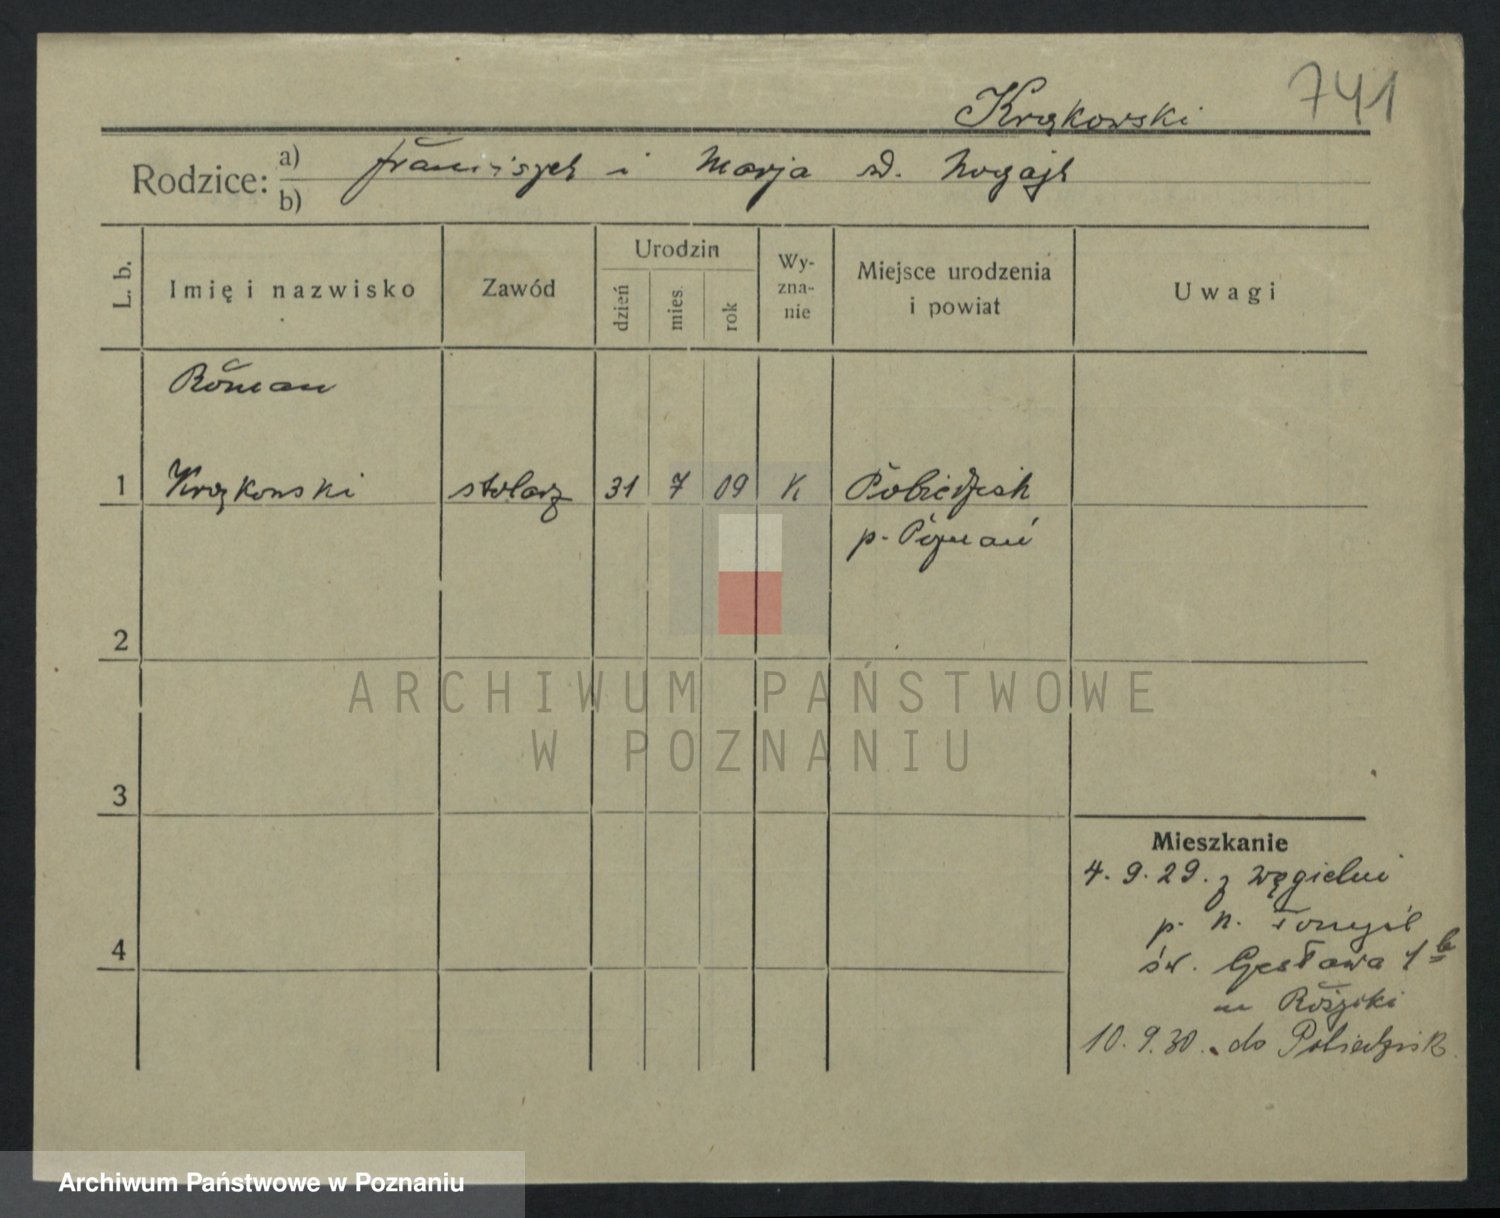 741
Krążkowski
Rodzice: a) Franciszek i Marja zd. Nogaj
b)
L. b. Imię i nazwisko Zawód Urodzin dzień mies. rok Wy-zna-nie Miejsce urodzenia i powiat Uwagi
Roman
1 Krążkowski stolarz 31 7 09 K Pobiedzisk
p. Poznań
2
ARCHIWUM PAŃSTWOWE
W POZNANIU
3
Mieszkanie
4. 9. 29. z Węgielni
p. N. Tomyśl
4
św. Czesława 1 b
u Różycki
10. 9. 30. do Pobiedzisk
Archiwum Państwowe w Poznaniu